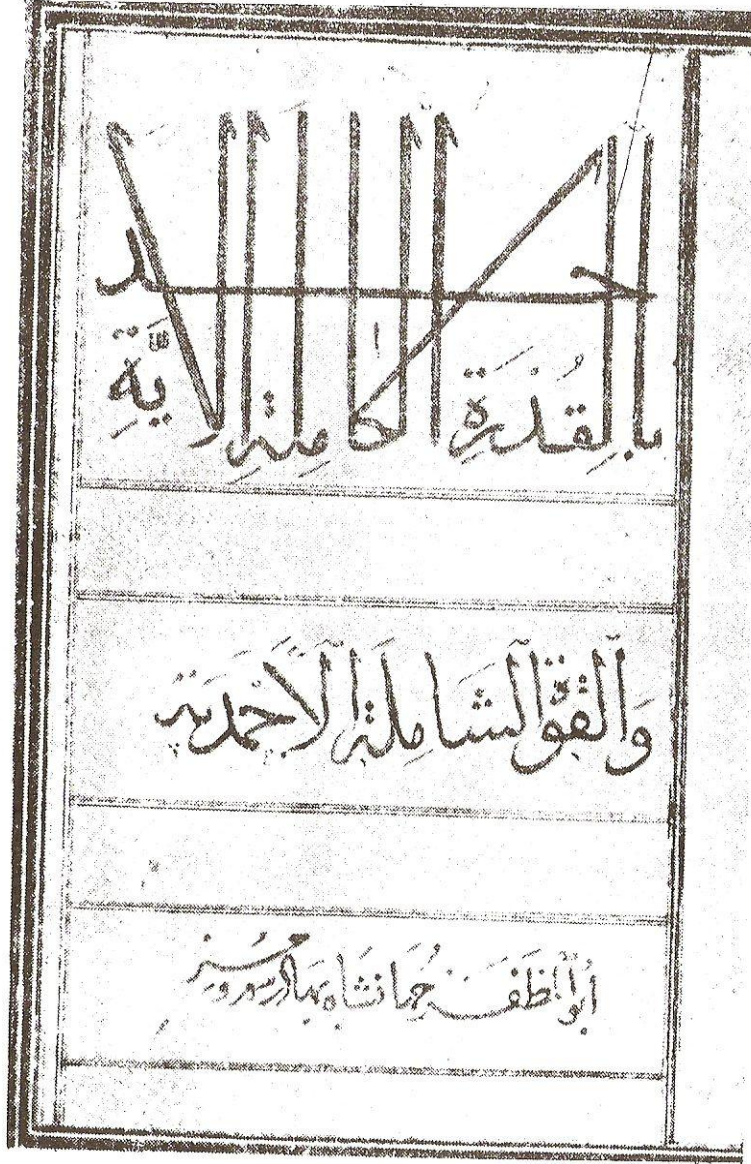 بالقدرة الكاملة الاحدية
والقوة الشاملة الاحمدية
أبو المظفر جهانشاه بهادر سوزوميز